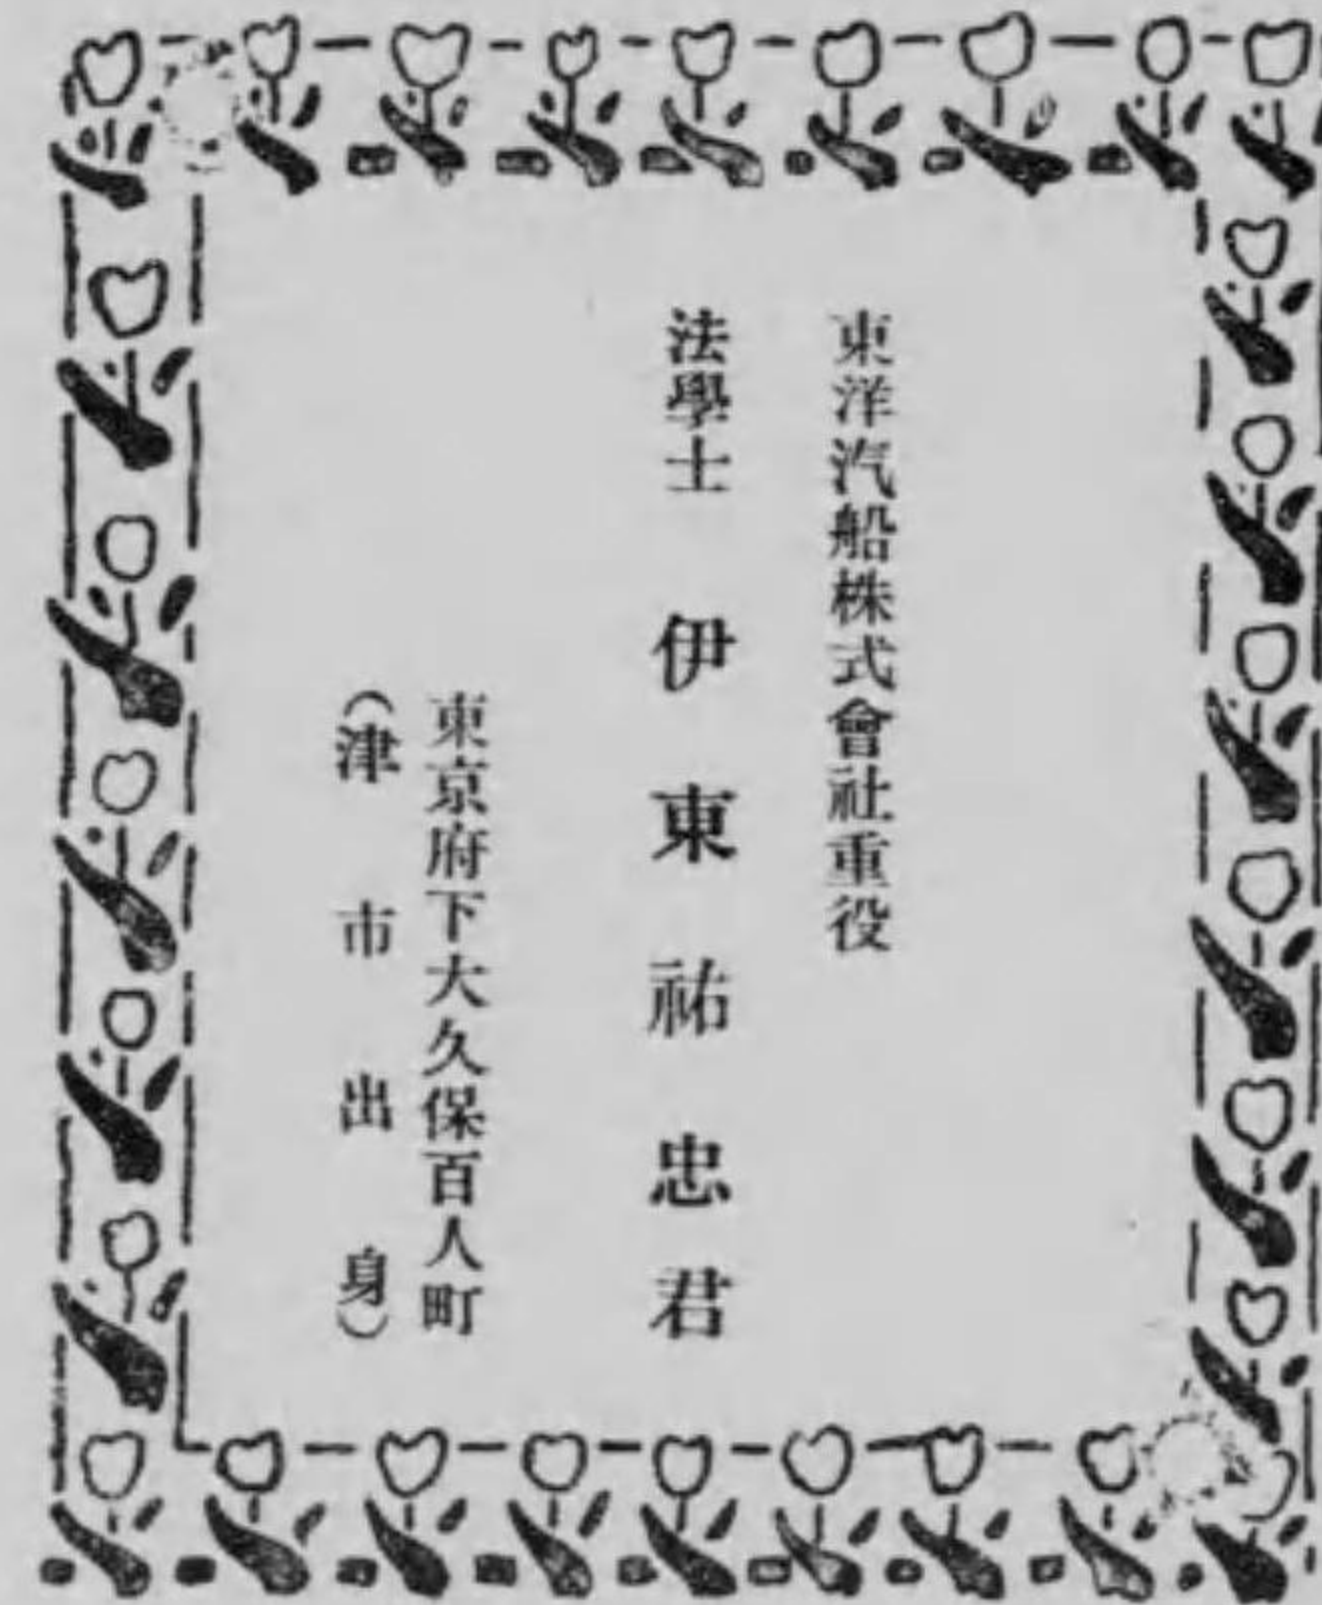 東洋汽船株式會社重役
法學士 伊東祐忠君
東京府下大久保百人町
（津市出身）